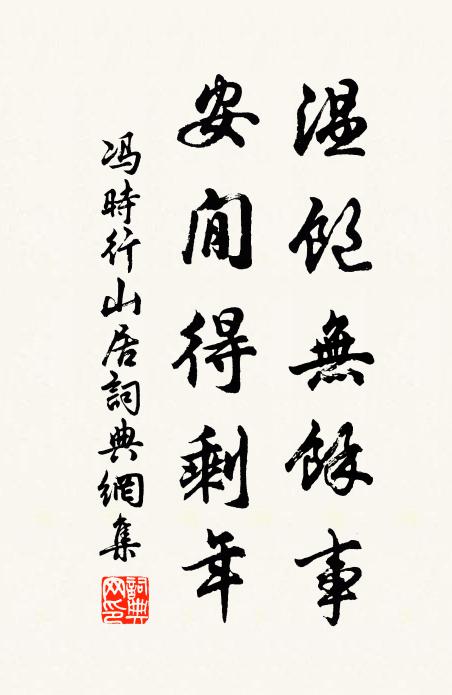 温飽無餘事
安閒得剩年
冯時行山居詞典網集
詞典网印